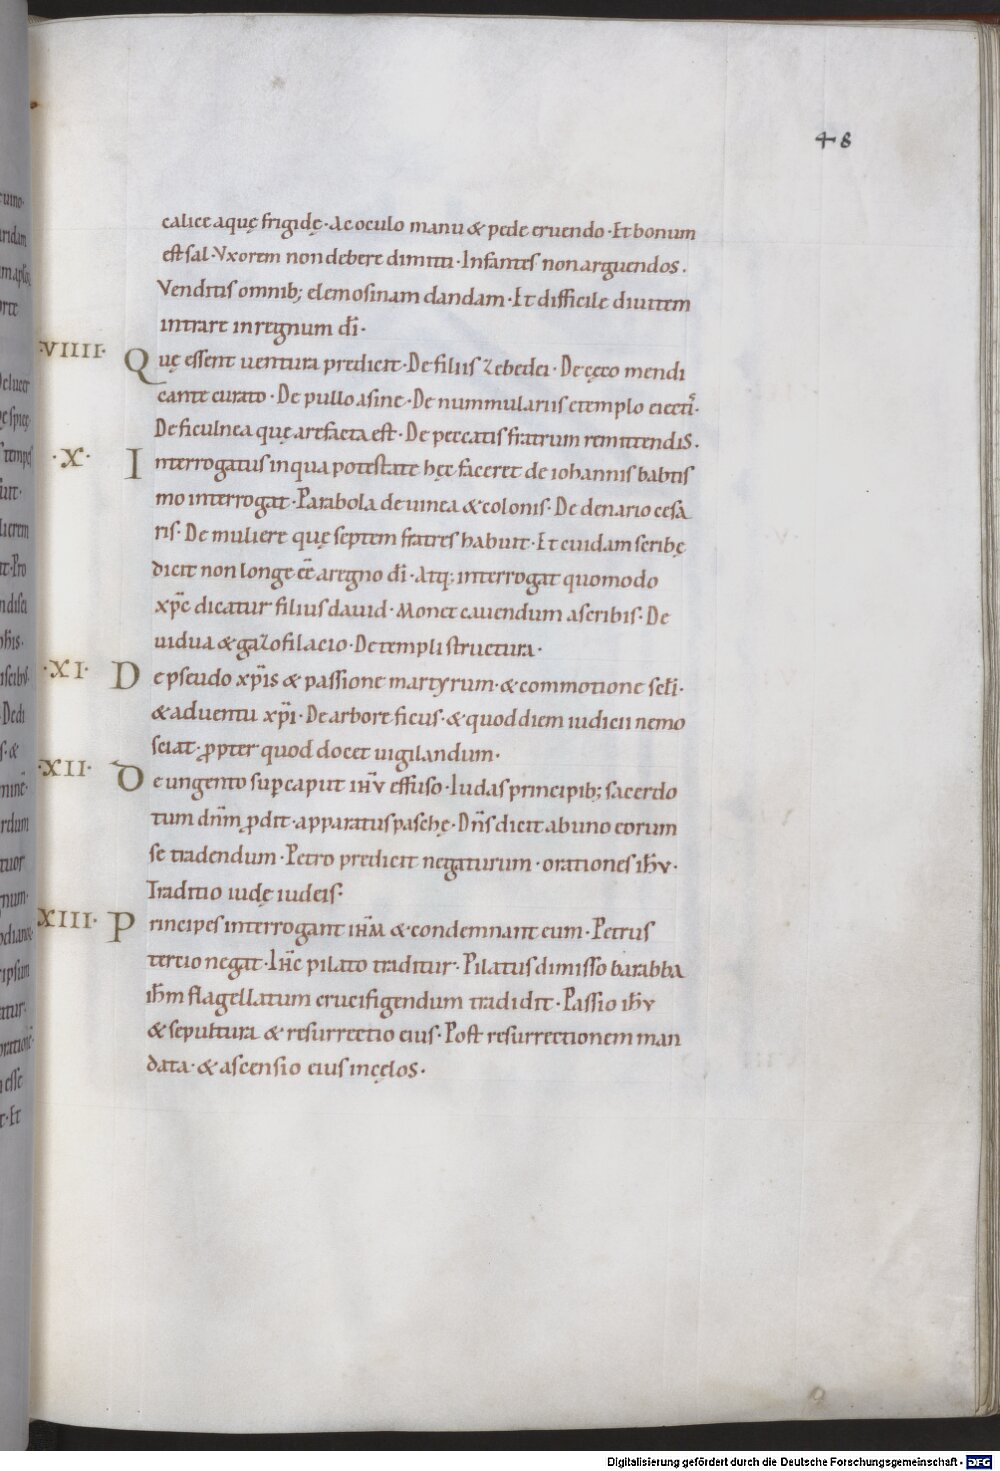 48
calice aquę frigidę · Ac oculo manu & pede eruendo · Et bonum
est sal · Vxorem non debere dimitti · Infantes non arguendos .
Venditis omnib; elemosinam dandam · Et difficile diuitem
intrare in regnum dī ·
·VIIII· Quę essent uentura predicit · De filiis zebedei · De cęco mendi
cante curato · De pullo asine · De nummulariis e templo eiectis̄ ·
De ficulnea quę arefacta est · De peccatis fratrum remittendis .
·X· Interrogatus in qua potestate hęc faceret de iohannis babtis
mo interrogat · Parabola de uinea & colonis · De denario cesa
ris · De muliere quę septem fratres habuit · Et cuidam scribę
dicit non longe eē a regno dī · Atq; interrogat quomodo
xp̄c dicatur filius dauid · Monet cauendum a scribis · De
uidua & gazofilacio · De templi structura ·
·XI· De pseudo xp̄is & passione martyrum · & commotione sclī ·
& aduentu xp̄i · De arbore ficus · & quod diem iudicii nemo
sciat · ꝓpter quod docet uigilandum ·
·XII· De ungento sup caput ihv̄ effuso · Iudas principib; sacerdo
tum dnm̄ ꝓdit · apparatus paschę · Dn̄s dicit ab uno eorum
se tradendum · Petro predicit negaturum · orationes ihv̄ ·
Traditio iudę iudeis :
XIII· Principes interrogant ihm̄ & condemnant eum · Petrus
tertio negat · Ihc̄ pilato traditur · Pilatus dimisso barabba
ihm̄ flagellatum crucifigendum tradidit · Passio ihv̄
& sepultura & resurrectio eius · Post resurrectionem man
data · & ascensio eius in cęlos ·
Digitalisierung gefördert durch die Deutsche Forschungsgemeinschaft - DFG